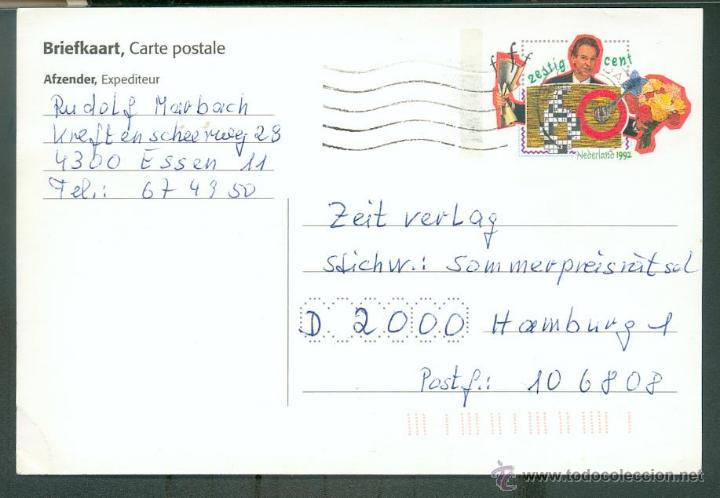 Briefkaart, Carte postale
Afzender, Expediteur
Rudolf Marbach
Kreftenscheerweg 23
4300 Essen 11
Tel.: 674350
zestig cent
60
Nederland 1992
Zeitverlag
Stichw.: Sommerpreisrätsel
D 2000 Hamburg 1
Postf.: 106808
www.todocoleccion.net